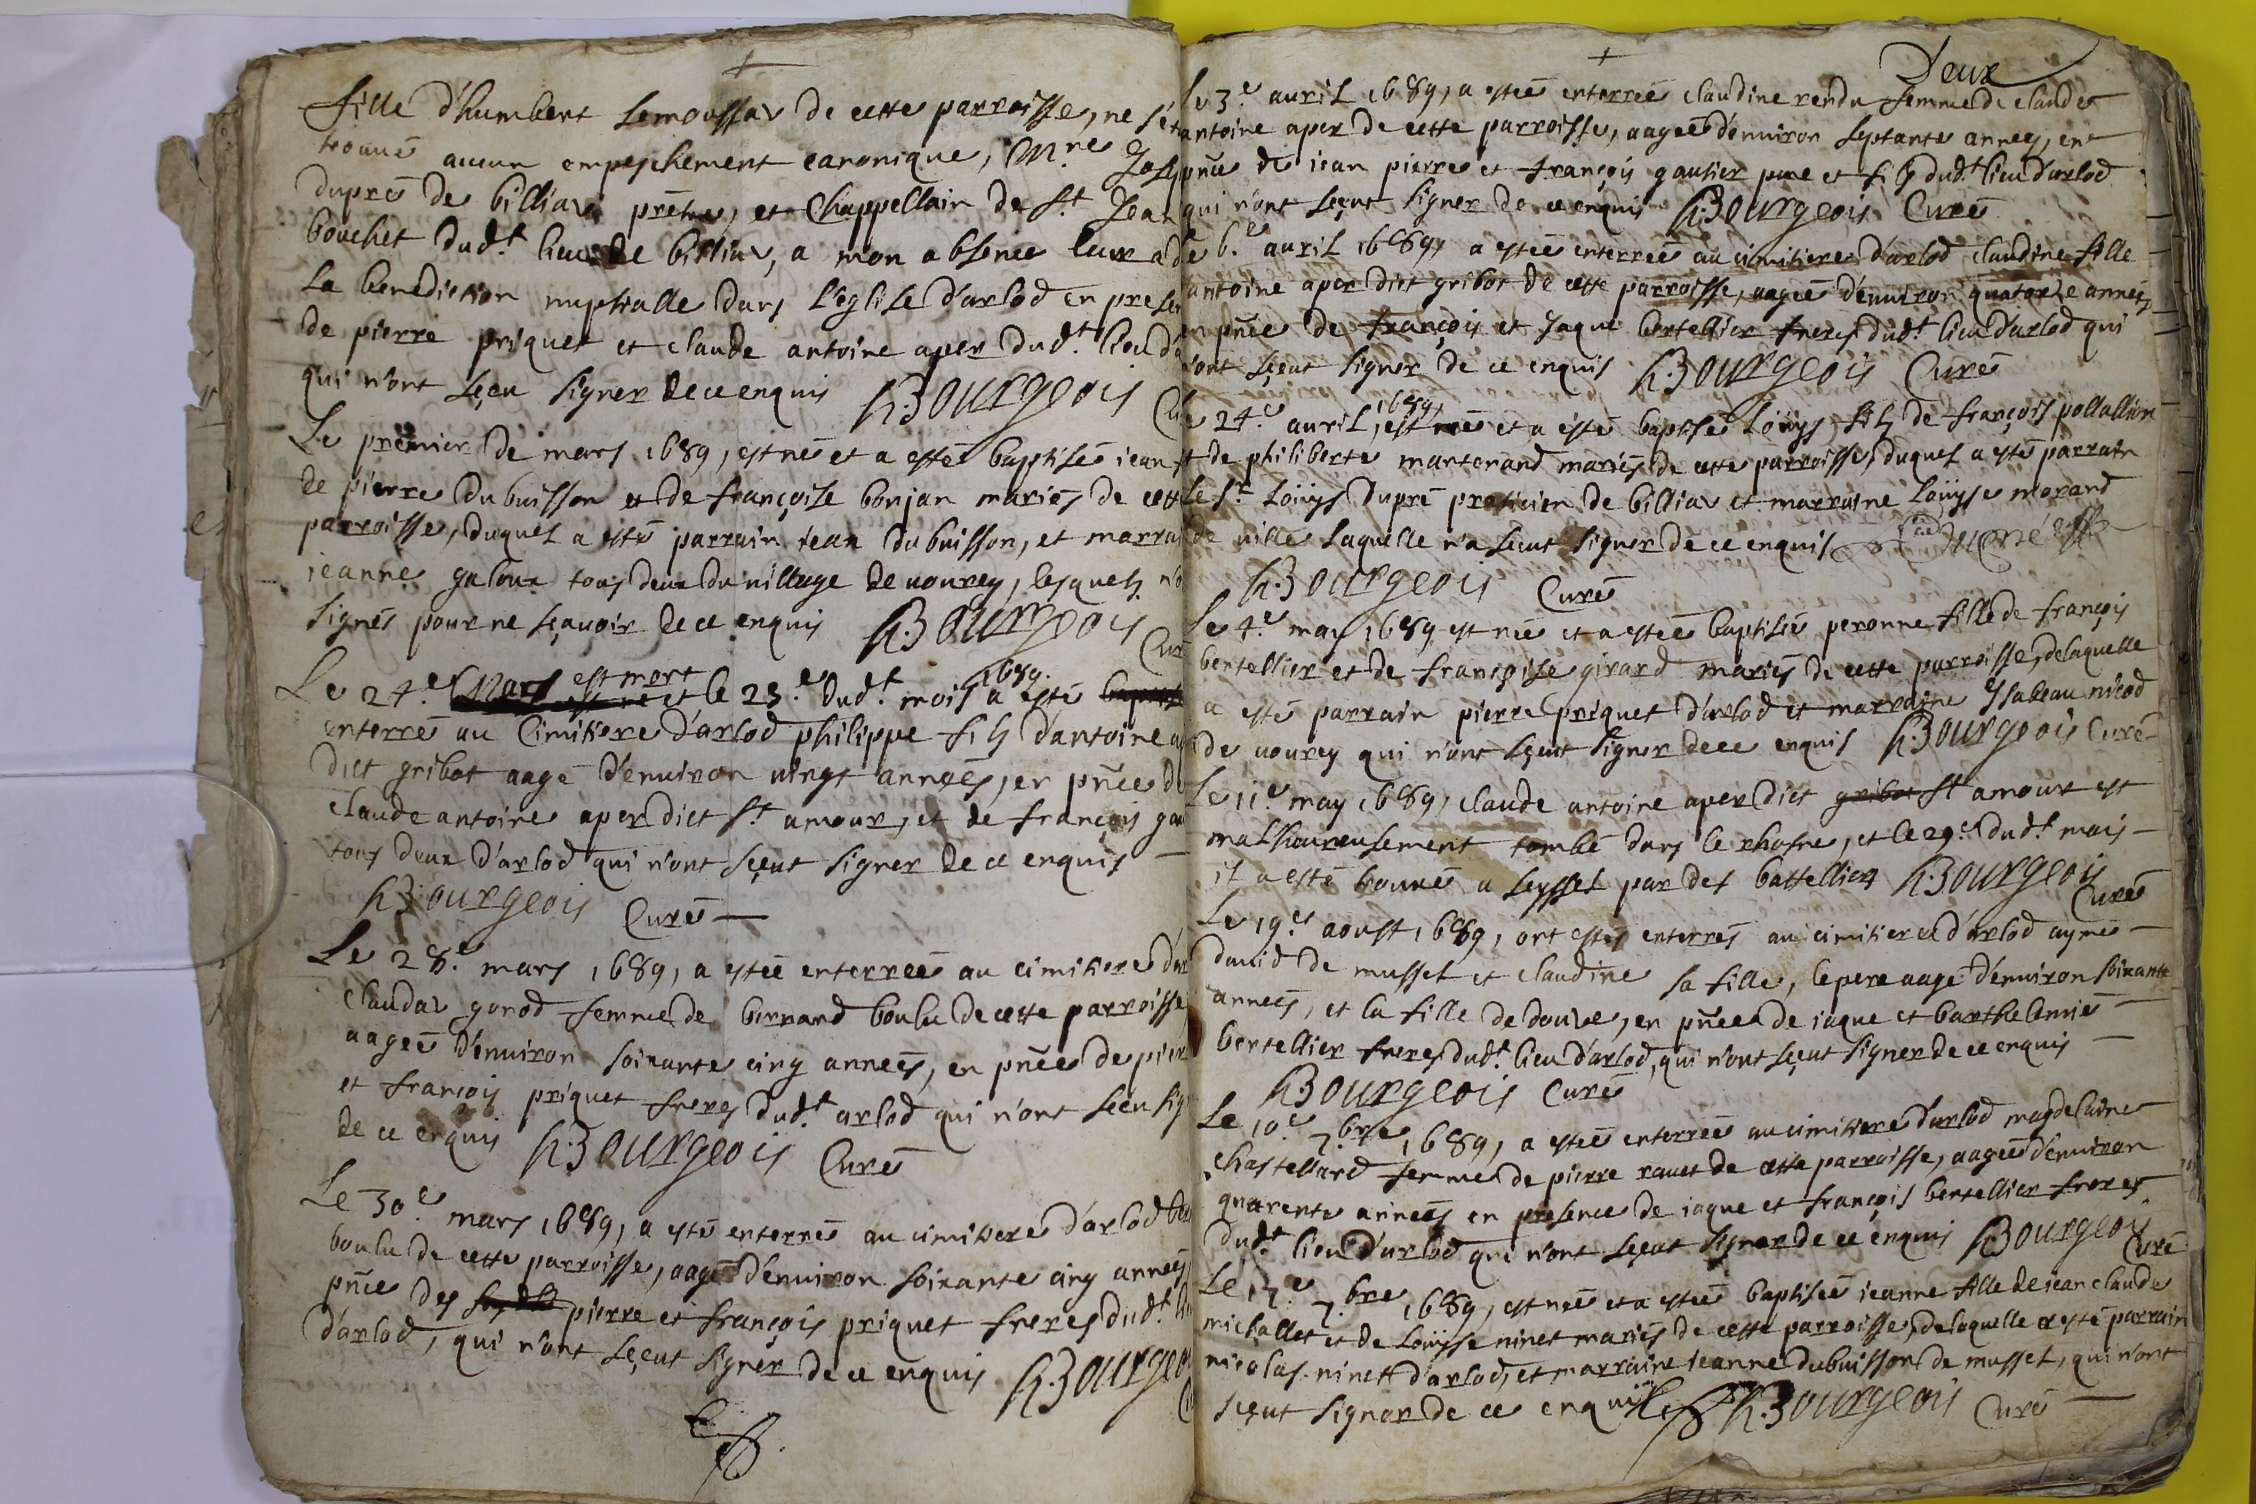 fille d'humbert Lemoussav de cette parroisse, ne s'et
trouué aucun empeschement canonique, Mre Jos
dupré de billiav prétre, et Chappellain de St Jean
bouchet dudt lieu de billiav, a mon absence leur a d
la benediction nuptialle dans l'eglise d'arlod en prese
de pierre priquet et claude antoine aper dudt lieu d'a
qui n'ont sçeu signer de ce enquis h:Bourgeois Cu
Le premier de mars 1689, est né et a esté baptisé jean f
de pierre dubuisson et de françoise bonjan mariés de cett
parroisse, duquel a esté parrain jean dubuisson, et marrai
jeanne galoux tous deux du village de vourey, lesquels n'o
signés pour ne sçavoir de ce enquis h:Bourgeois Cur
Le 24e Mars est mort et le 25e dudt mois 1689. a esté
enterré au Cimitiere d'arlod philippe fils d'antoine
dict gribot aagé d'environ vingt années, en pnce d
claude antoine aper dict St amour, et de françois gau
tous deux d'arlod qui n'ont sçeut signer de ce enquis —
h:Bourgeois Curé —
Le 28e mars 1689, a estée enterreé au cimitiere d'ar
claudav gorod femme de bernard boulu de cette parroisse,
aageé d'environ soixante cinq années, en pnce de pier
et françois priquet freres dudt arlod qui n'ont sceu sig
de ce enquis h:Bourgeois Curé
Le 30e mars 1689, a esté enterré au cimitiere d'arlod be
boulu de cette parroisse, aagé d'environ soixante cinq années,
pnce des pierre et françois priquet freres dudt li
d'arlod, qui n'ont sçeut signer de ce enquis h:Bourgeoi
Deux
Le 3e avril 1689, a estée enterreé claudine rendu femme de claude
antoine aper de cette parroisse, aageé d'environ septante années, en
pnce de jean pierre et françois gautier pere et fils dudt lieu d'arlod
qui n'ont sçeut signer de ce enquis h:Bourgeois Curé
Le 6e avril 1689, a estée enterreé au cimitiere d'arlod claudine fille
antoine aper dict gribot de cette parroisse, aageé d'environ quatorze années,
en pnce de françois et jaque bertellier freres dudt lieu d'arlod qui
n'ont sçeut signer de ce enquis h:Bourgeois Curé
Le 24e avril, 1689, est né et a esté baptisé Loüys fils de françois pollallion
et de philiberte mantenand mariés de cette parroisse, duquel a esté parrain
le Sr Loüys dupré praticien de billiav et marraine Loüyse morand
de ville laquelle n'a sçeut signer de ce enquis
h:Bourgeois Curé
Le 4e may 1689 est née et a estée baptisée peronne fille de françois
bertellier et de françoise girard mariés de cette parroisse, de laquelle
a esté parrain pierre priquet d'arlod et marraine ysabeau nicod
de vourey qui n'ont sçeut signer de ce enquis h:Bourgeois Curé
Le 11e may 1689, claude antoine aper dict gribot St amour est
malheureusement tombé dans le rhosne, et le 29e dudt mois —
il a esté trouvé a seyssel par des battelliers h:Bourgeois
Curé
Le 19e aoust 1689, ont estés enterrés au cimitiere d'arlod aymé —
david de mussel et claudine sa fille, le pere aagé d'environ soixante
années, et la fille de douze, en pnce de jaque et barthelemie —
bertellier freres dudt lieu d'arlod, qui n'ont sçeut signer de ce enquis —
h:Bourgeois Curé
Le 10e 7bre 1689, a estée enterreé au cimitiere d'arlod magdelaine
chastellard femme de pierre ravet de cette parroisse, aageé d'environ
quarente années en presence de jaque et françois bertellier freres
dudt lieu d'arlod qui n'ont sçeut signer de ce enquis h:Bourgeois
Curé
Le 17e 7bre 1689, est née et a estée baptisée jeanne fille de jean claude
michallet et de Loüyse ninet mariés de cette parroisse, de laquelle a esté parrain
nicolas ninet d'arlod, et marraine jeanne dubuisson de mussel, qui n'ont
sçeut signer de ce enquis h:Bourgeois Curé —